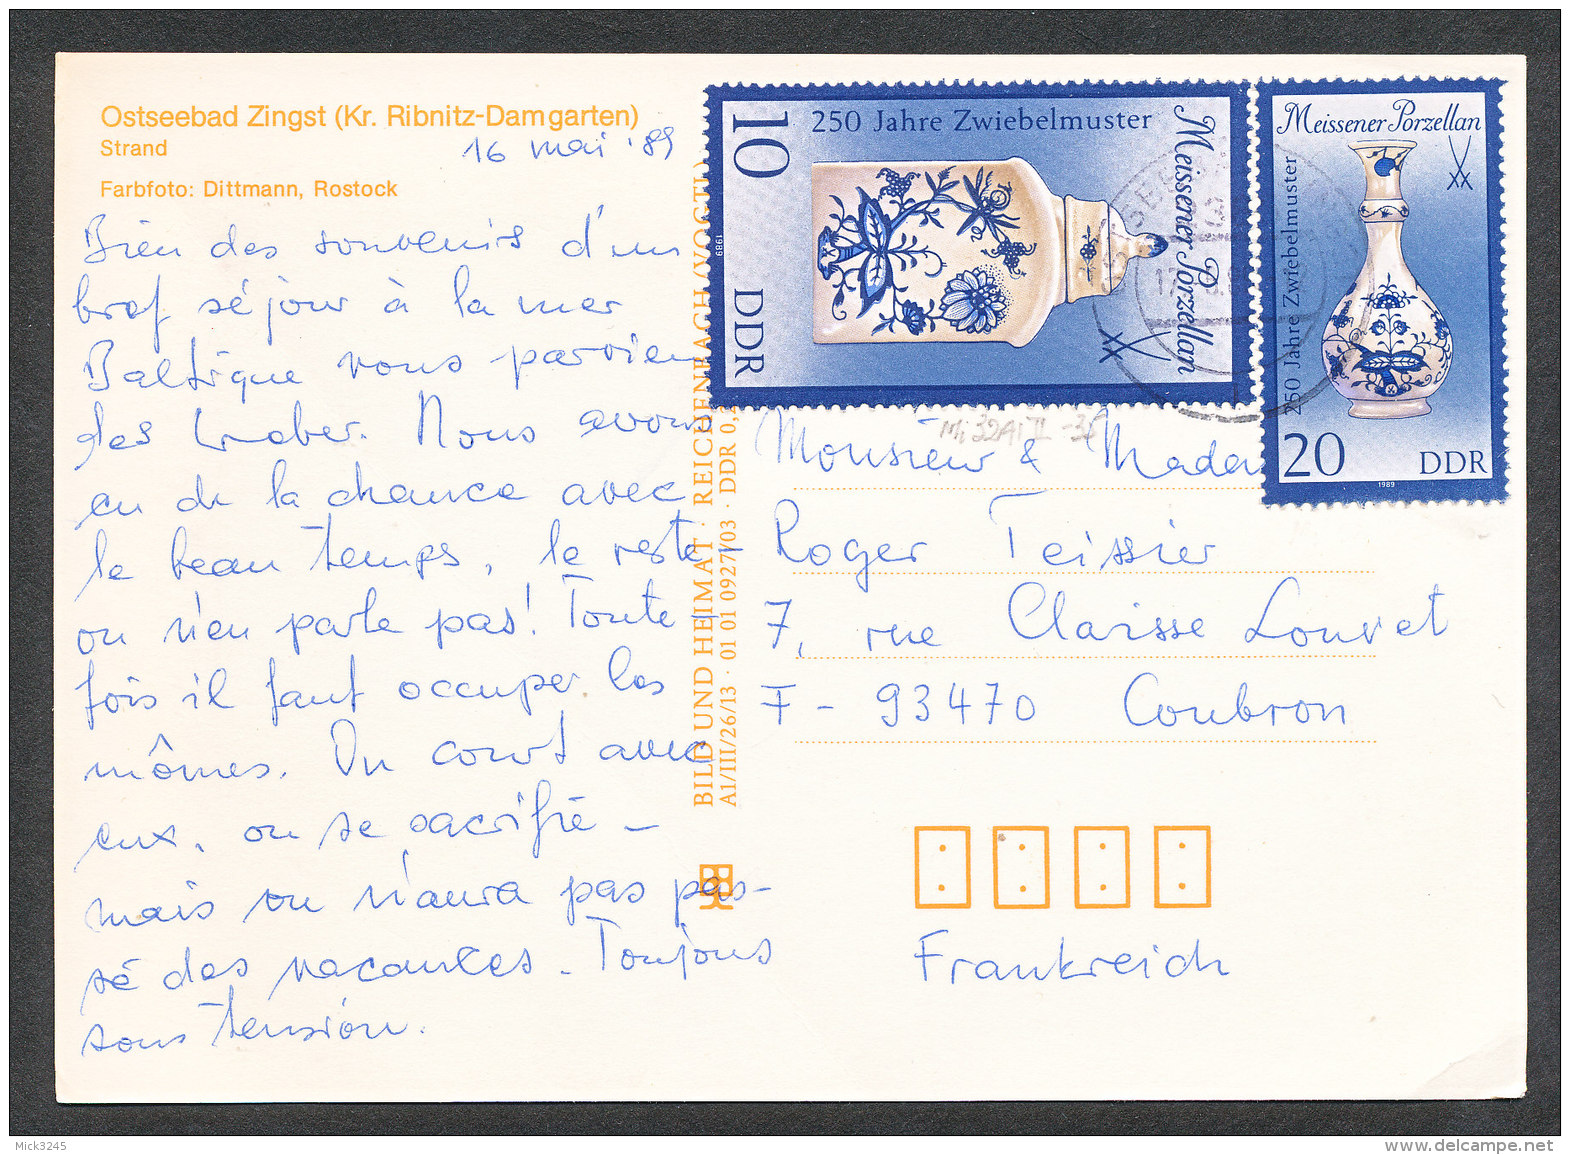 Ostseebad Zingst (Kr. Ribnitz-Damgarten)
Strand
16 mai '89
Farbfoto: Dittmann, Rostock
Bien des souvenirs d'un
bref séjour à la mer
Baltique vous parvien
des Weber. Nous avons
eu de la chance avec
le beau temps, le reste -
on n'en parle pas! Toute-
fois il faut occuper les
mômes. On court avec
eux, on se sacrifie -
mais on n'aura pas pas-
sé des vacances. Toujours
sous tension.
BILD UND HEIMAT · REICHENBACH (VOGTL)
A1/III/26/13 · 01 01 0927/03 · DDR 0,2
10 DDR
250 Jahre Zwiebelmuster
Meissener Porzellan
1989
Meissener Porzellan
250 Jahre Zwiebelmuster
20 DDR
1989
Monsieur & Madam
Roger Teissier
7, rue Clarisse Louvet
F - 93470 Coubron
Frankreich
Mick3245
www.delcampe.net